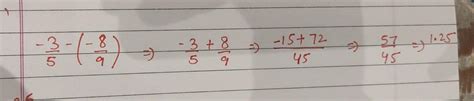 -3/5 - (-8/9) ⇒ -3/5 + 8/9 ⇒ -15+72/45 ⇒ 57/45 ⇒ 1.25